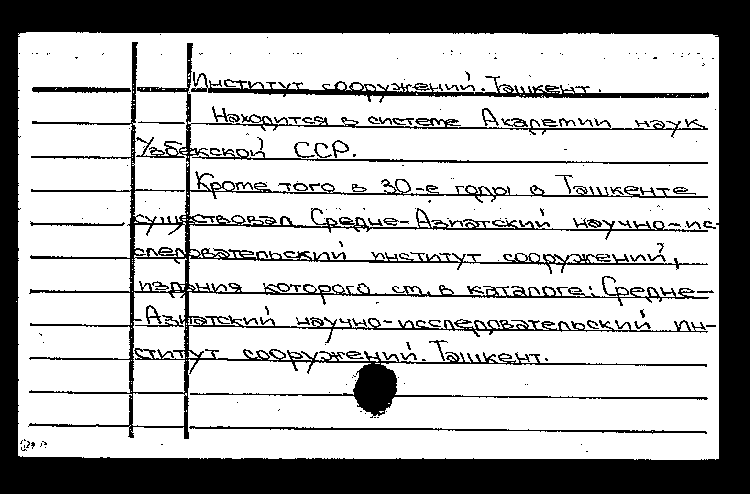 Институт сооружений. Ташкент.
Находится в системе Академии наук
Узбекской ССР.
Кроме того в 30-е годы в Ташкенте
существовал Средне-Азиатский научно-ис-
следовательский институт сооружений,
издания которого см. в каталоге: Средне-
-Азиатский научно-исследовательский ин-
ститут сооружений. Ташкент.